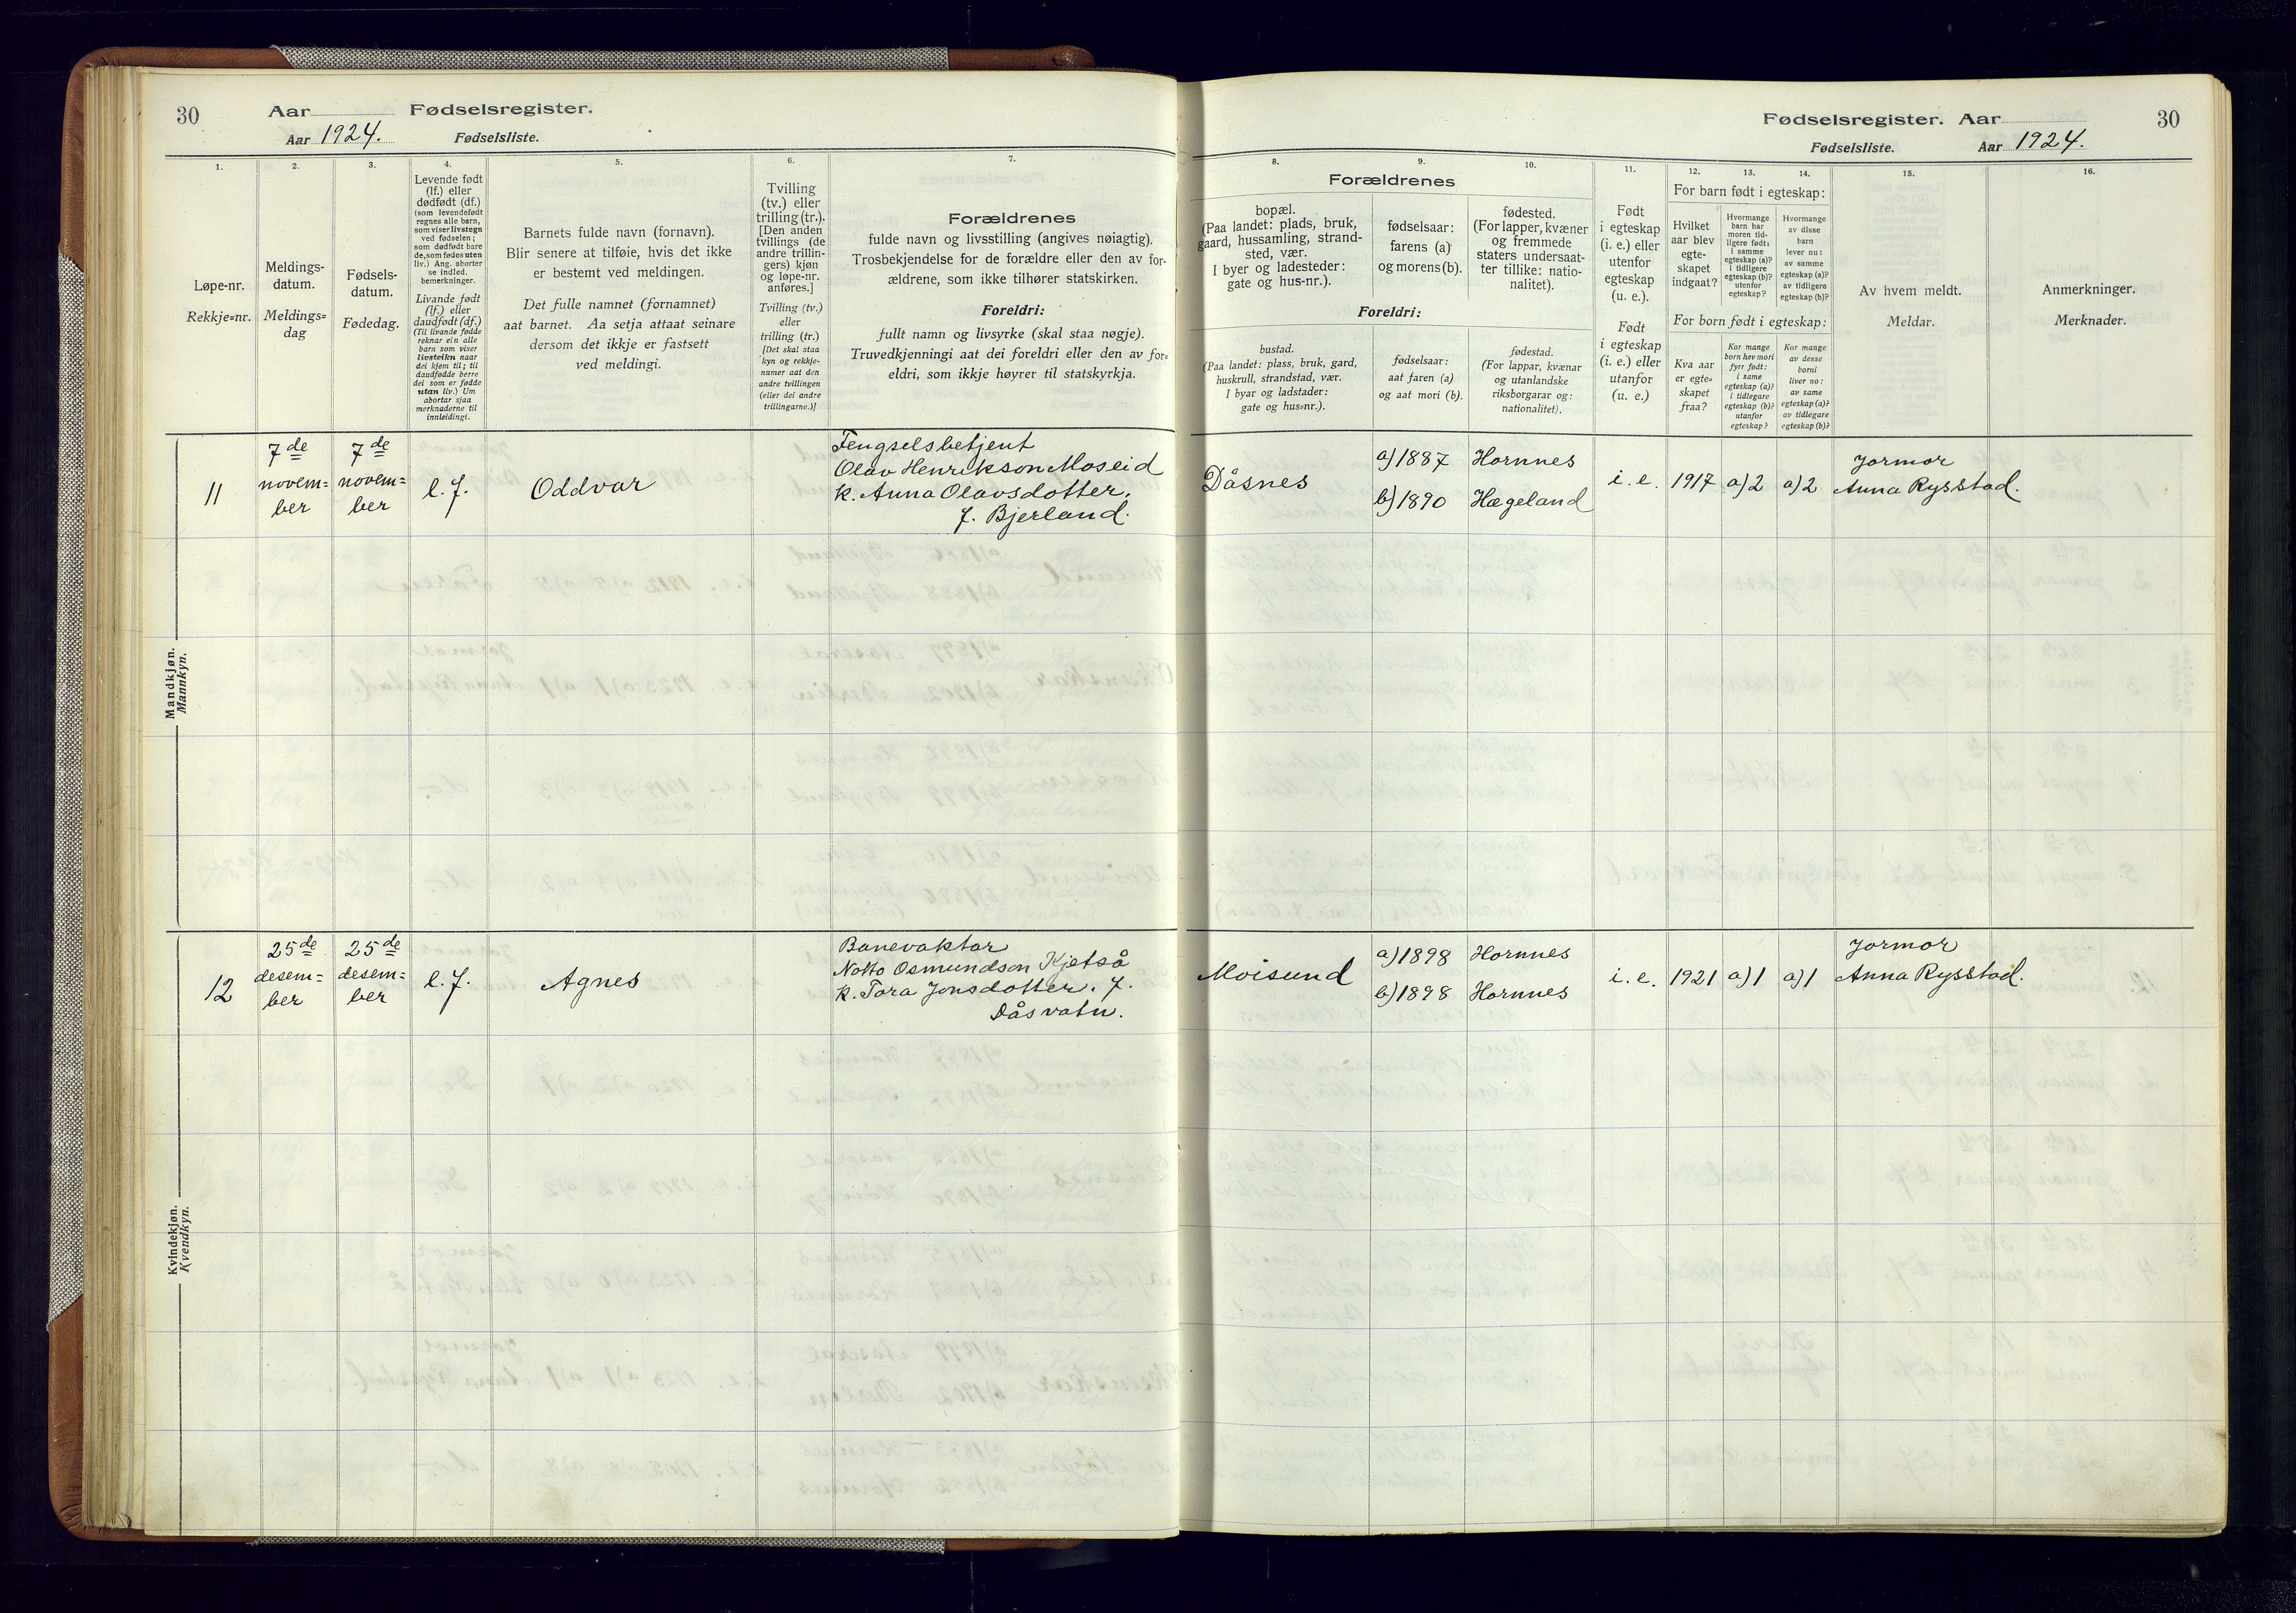 30
Aar
Fødselsregister.
Aar 1924.
Fødselsliste.
1.
Løpe-nr.
Rekkje=nr.
2.
Meldings-
datum.
Meldings=
dag
3.
Fødsels-
datum.
Fødedag.
4.
Levende født
(lf.) eller
dødfødt (df.)
(som levendefødt
regnes alle barn,
som viser livstegn
ved fødselen;
som dødfødt bare
de, som fødes uten
liv.) Ang. aborter
se indled.
bemerkninger.
Livande født
(lf.) eller
daudfødt (df.)
(Til livande fødde
reknar ein alle
barn som viser
livsteikn naar
dei kjem til; til
daudfødde berre
dei som er fødde
utan liv.) Um
abortar sjaa
merknaderne til
innleidingi.
5.
Barnets fulde navn (fornavn).
Blir senere at tilføie, hvis det ikke
er bestemt ved meldingen.
Det fulle namnet (fornamnet)
aat barnet. Aa setja attaat seinare
dersom det ikkje er fastsett
ved meldingi.
6.
Tvilling
(tv.) eller
trilling (tr.).
[Den anden
tvillings (de
andre trillin-
gers) kjøn
og løpe-nr.
anføres.]
Tvilling (tv.)
eller
trilling (tr.)
[Det skal staa
kyn og rekkje-
numer aat den
andre tvillingen
(eller dei andre
trillingarne.)]
7.
Forældrenes
fulde navn og livsstilling (angives nøiagtig).
Trosbekjendelse for de forældre eller den av for-
ældrene, som ikke tilhører statskirken.
Foreldri:
fullt namn og livsyrke (skal staa nøgje).
Truvedkjenningi aat dei foreldri eller den av for=
eldri, som ikkje høyrer til statskyrkja.
Mandkjøn.
Mannkyn.
11
7de
novem=
ber
7de
novem=
ber
l. f.
Oddvar
Fengselsbetjent
Olav Henrikson Moseid
k. Anna Olavsdotter.
f. Bjerland.
Kvindekjøn.
Kvendkyn.
12
25de
desem=
ber
25de
desem=
ber
l. f.
Agnes
Banevaktar
Notto Osmundson Kjetså
k. Tora Jonsdotter. f.
Dåsvatn.
Fødselsregister. Aar
30
Fødselsliste.
Aar 1924.
Forældrenes
8.
bopæl.
(Paa landet: plads, bruk,
gaard, hussamling, strand-
sted, vær.
I byer og ladesteder:
gate og hus-nr.).
9.
fødselsaar:
farens (a)
og morens (b).
10.
fødested.
(For lapper, kvæner
og fremmede
staters undersaat-
ter tillike: natio-
nalitet).
Foreldri:
bustad.
(Paa landet: plass, bruk, gard,
huskrull, strandstad, vær.
I byar og ladstader:
gate og hus=nr.).
fødselsaar:
aat faren (a)
og aat mori (b).
fødestad.
(For lappar, kvænar
og utanlandske
riksborgarar og:
nationalitet).
11.
Født
i egteskap
(i. e.) eller
utenfor
egteskap
(u. e.).
Født
i egteskap
(i. e.) eller
utanfor
(u. e.)
12.
13.
14.
For barn født i egteskap:
Hvilket
aar blev
egte-
skapet
indgaat?
Hvormange
barn har
moren tid-
ligere født:
i samme
egteskap (a)?
i tidligere
egteskap (b)?
utenfor
egteskap?
Hvormange
av disse
barn
lever nu:
av samme
egteskap (a)?
av tidligere
egteskap (b)?
For born født i egteskap:
Kva aar
er egte=
skapet
fraa?
Kor mange
born hev mori
fyrr født:
i same
egteskap (a)?
i tidlegare
egteskap (b)?
utanfor
egteskap?
Kor mange
av desse
borni
liver no:
av same
egteskap (a)?
av tidlegare
egteskap (b)?
15.
Av hvem meldt.
Meldar.
16.
Anmerkninger.
Merknader.
Dåsnes
a) 1887
b) 1890
Hornnes
Hægeland
i. e.
1917
a) 2
a) 2
Jormor
Anna Rysstad.
Moisund
a) 1898
b) 1898
Hornnes
Hornnes
i. e.
1921
a) 1
a) 1
Jormor
Anna Rysstad.